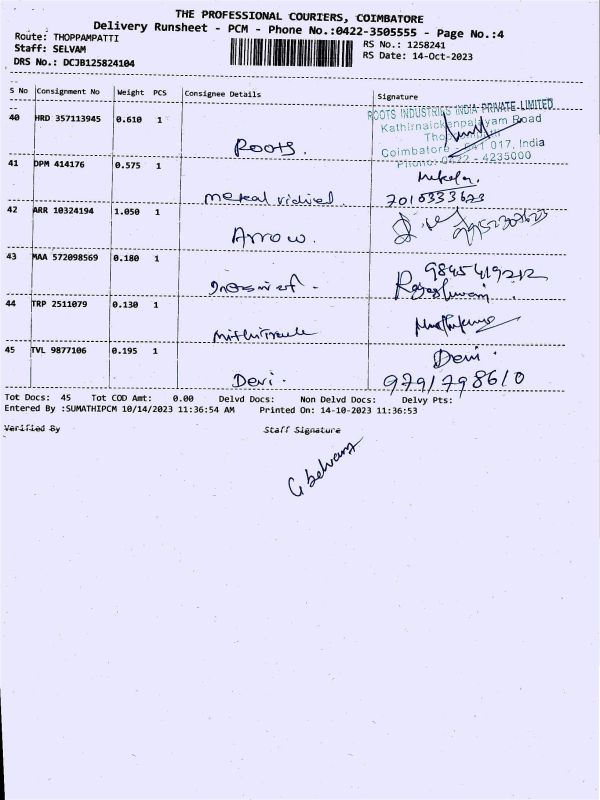 THE PROFESSIONAL COURIERS, COIMBATORE
Delivery Runsheet - PCM - Phone No.:0422-3505555 - Page No.:4
Route: THOPPAMPATTI
Staff: SELVAM
DRS No.: DCJB125824104
RS No.: 1258241
RS Date: 14-Oct-2023
S No Consignment No Weight PCS Consignee Details Signature
40 HRD 357113945 0.610 1 Roots.
ROOTS INDUSTRIES INDIA PRIVATE LIMITED
Kathirnaickenpalayam Road
Coimbatore - 641 017, India
Phone: 0422 - 4235000
41 DPM 414176 0.575 1
7010333623
42 ARR 10324194 1.050 1 Arrow.
43 MAA 572098569 0.180 1
9845419212
Rajeshwari.
44 TRP 2511079 0.130 1
45 TVL 9877106 0.195 1 Devi.
Devi.
9791798610
Tot Docs: 45 Tot COD Amt: 0.00 Delvd Docs: Non Delvd Docs: Delvy Pts:
Entered By :SUMATHIPCM 10/14/2023 11:36:54 AM Printed On: 14-10-2023 11:36:53
Verified By Staff Signature
G Selvam